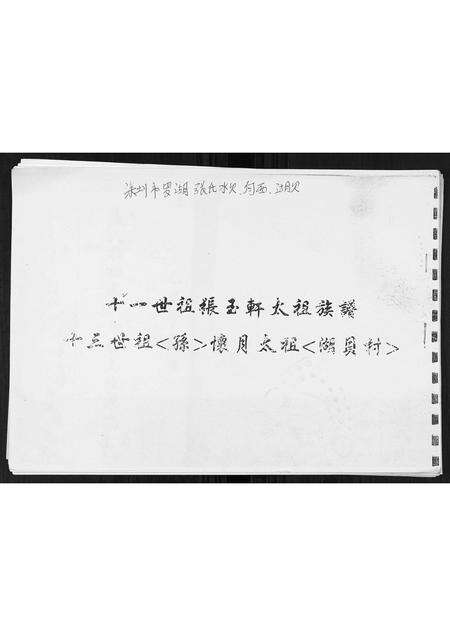 深圳市罗湖 张氏 水贝 向西 湖贝
十一世祖張玉軒太祖族譜
十三世祖<孫>懷月太祖<湖貝村>